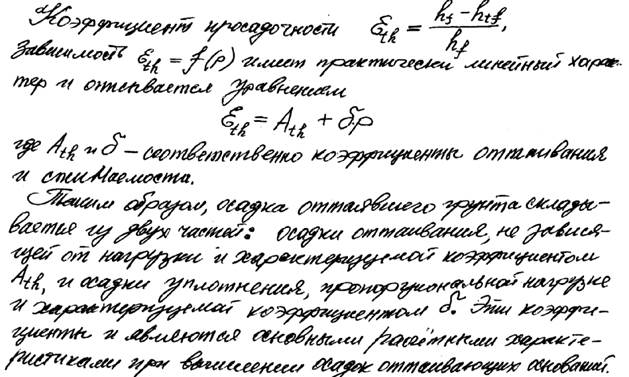 Коэффициент просадочности ℰth = (hf − htf) / hf,
зависимость ℰth = f(p) имеет практически линейный харак-
тер и описывается уравнением
ℰth = Ath + δ·p
где Ath и δ – соответственно коэффициенты оттаивания
и сжимаемости.
Таким образом, осадка оттаявшего грунта склады-
вается из двух частей: осадки оттаивания, не завися-
щей от нагрузки и характеризуемой коэффициентом
Ath, и осадки уплотнения, пропорциональной нагрузке
и характеризуемой коэффициентом δ. Эти коэффи-
циенты и являются основными расчётными характе-
ристиками при вычислении осадок оттаивающих оснований.